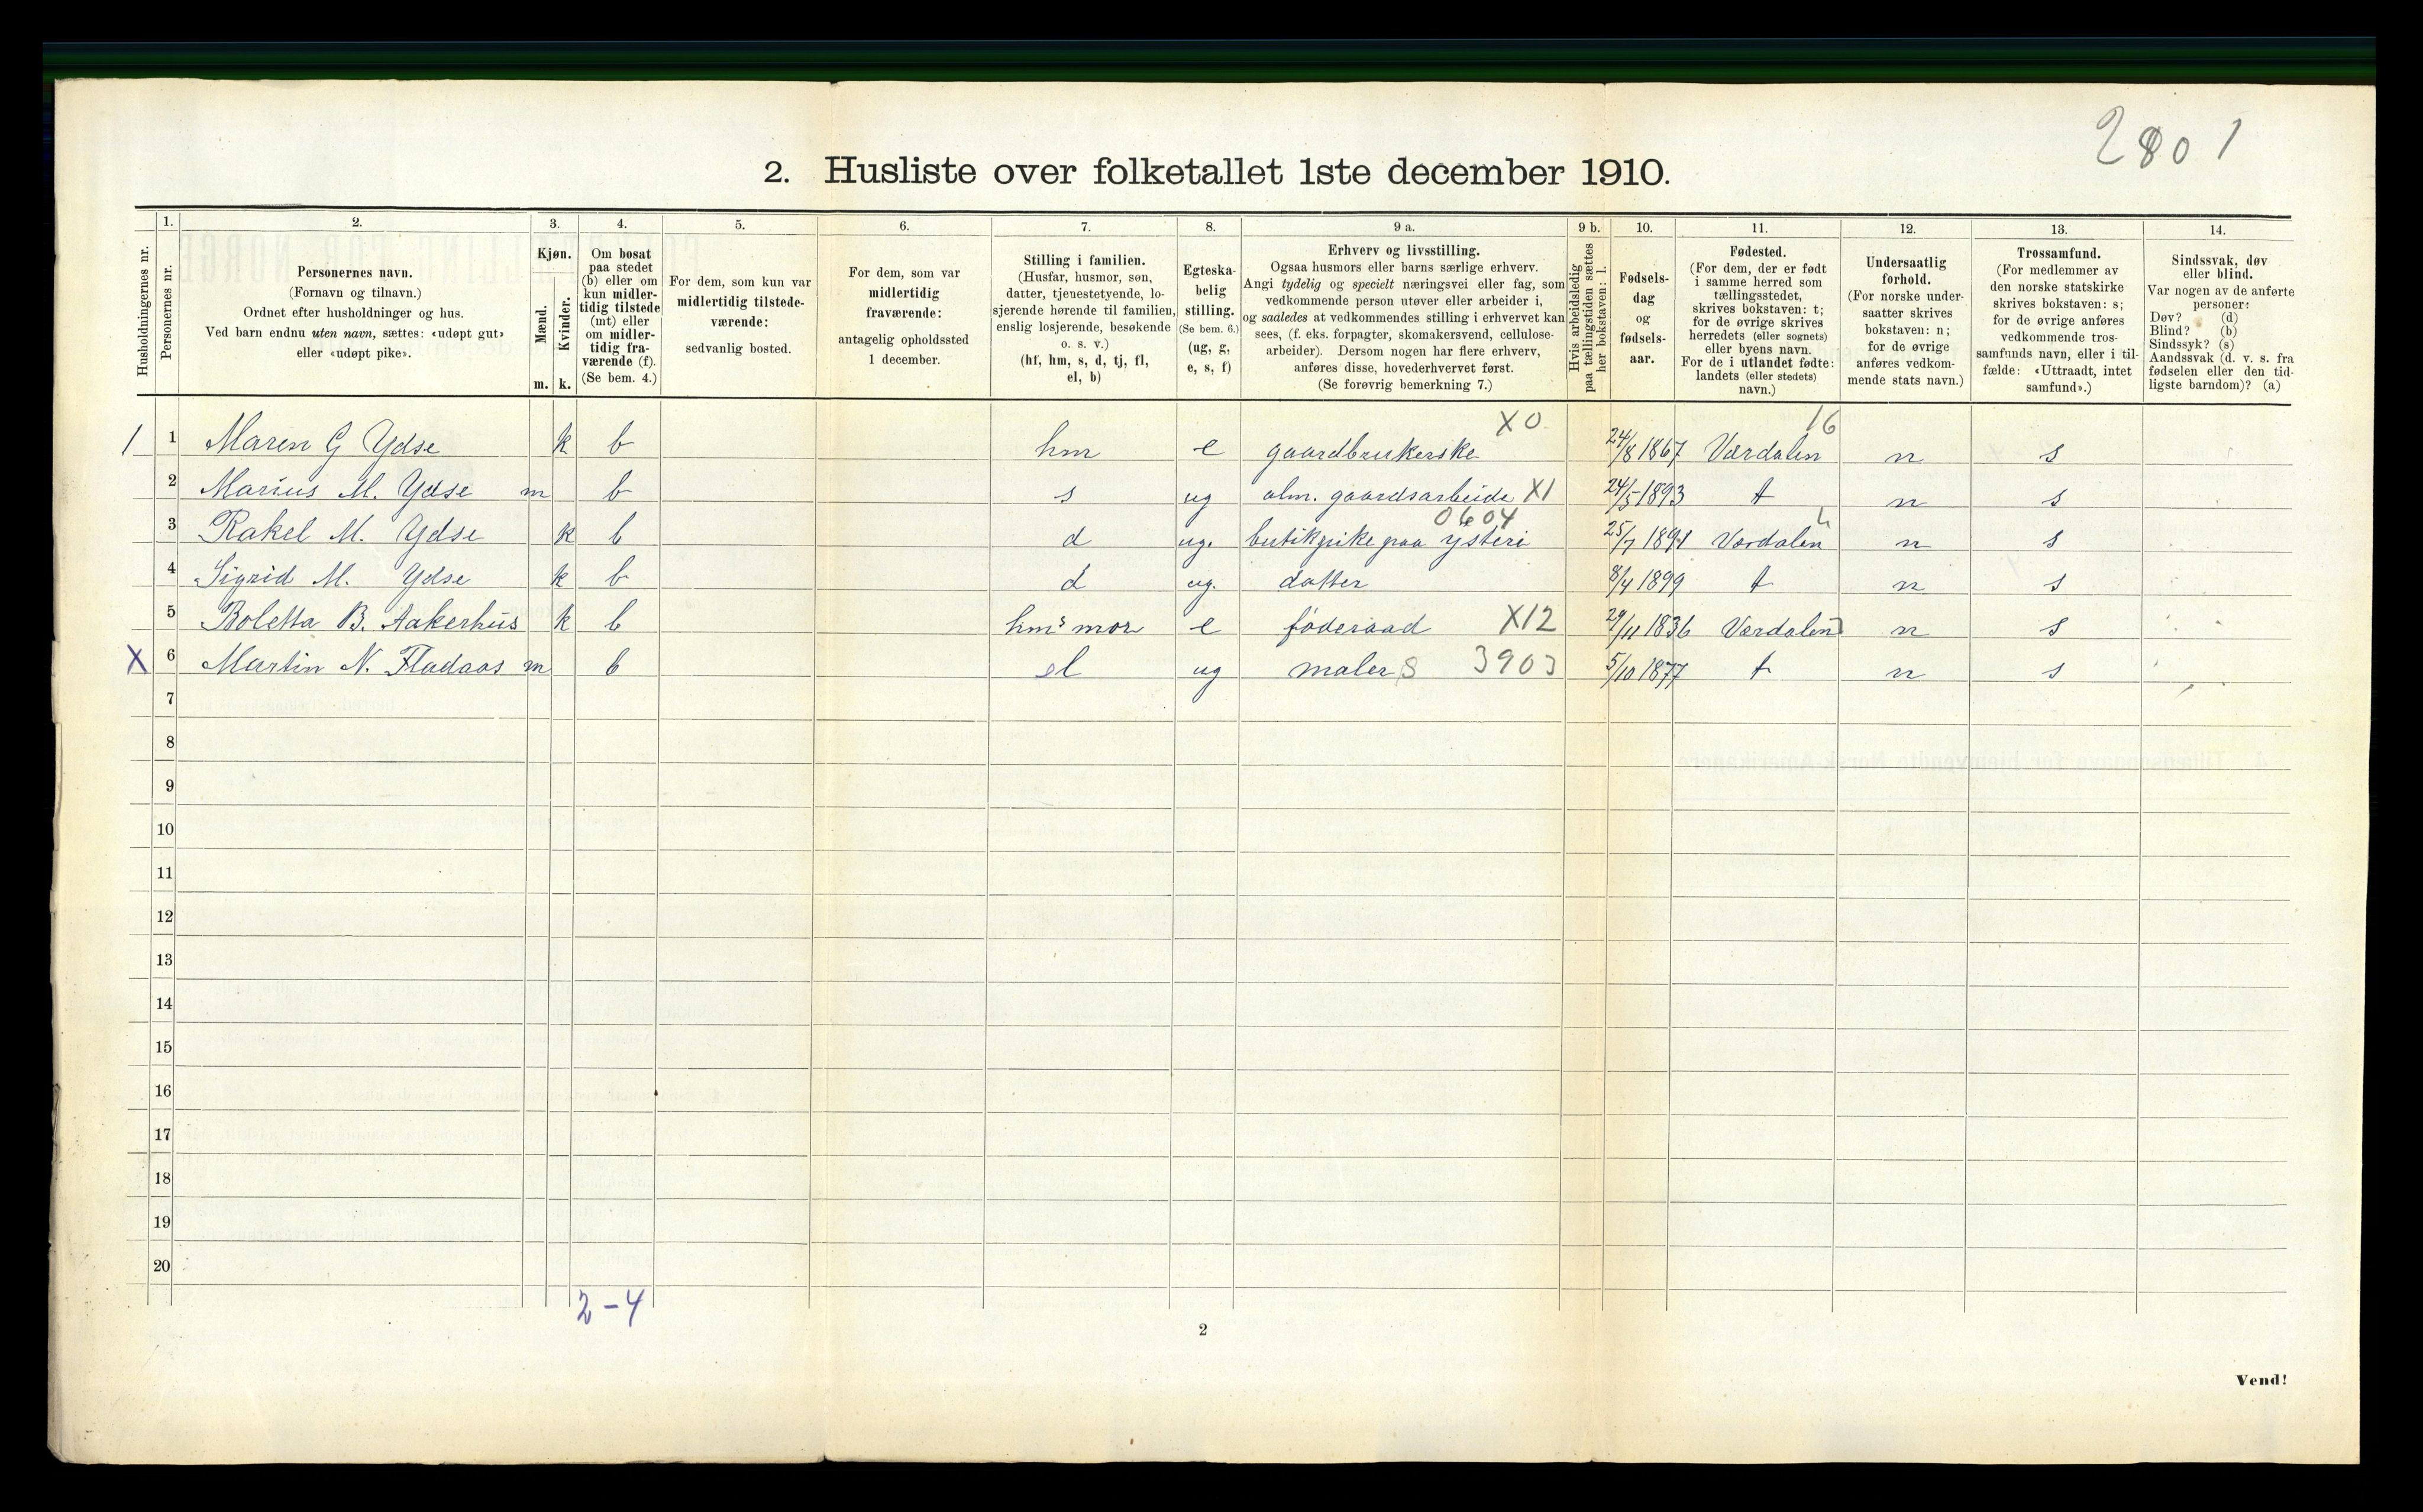 2801
2. Husliste over folketallet 1ste december 1910.
Husholdningernes nr.
1.
Personernes nr.
2.
Personernes navn.
(Fornavn og tilnavn.)
Ordnet efter husholdninger og hus.
Ved barn endnu uten navn, sættes: «udøpt gut»
eller «udøpt pike».
3.
Kjøn.
Mænd.
Kvinder.
m. k.
4.
Om bosat
paa stedet
(b) eller om
kun midler-
tidig tilstede
(mt) eller
om midler-
tidig fra-
værende (f).
(Se bem. 4.)
5.
For dem, som kun var
midlertidig tilstede-
værende:
sedvanlig bosted.
6.
For dem, som var
midlertidig
fraværende:
antagelig opholdssted
1 december.
7.
Stilling i familien.
(Husfar, husmor, søn,
datter, tjenestetyende, lo-
sjerende hørende til familien,
enslig losjerende, besøkende
o. s. v.)
(hf, hm, s, d, tj, fl,
el, b)
8.
Egteska-
belig
stilling.
(Se bem. 6.)
(ug, g,
e, s, f)
9 a.
Erhverv og livsstilling.
Ogsaa husmors eller barns særlige erhverv.
Angi tydelig og specielt næringsvei eller fag, som
vedkommende person utøver eller arbeider i,
og saaledes at vedkommendes stilling i erhvervet kan
sees, (f. eks. forpagter, skomakersvend, cellulose-
arbeider). Dersom nogen har flere erhverv,
anføres disse, hovederhvervet først.
(Se forøvrig bemerkning 7.)
9 b.
Hvis arbeidsledig
paa tællingstiden sættes
her bokstaven: l.
10.
Fødsels-
dag
og
fødsels-
aar.
11.
Fødested.
(For dem, der er født
i samme herred som
tællingsstedet,
skrives bokstaven: t;
for de øvrige skrives
herredets (eller sognets)
eller byens navn.
For de i utlandet fødte:
landets (eller stedets)
navn.)
12.
Undersaatlig
forhold.
(For norske under-
saatter skrives
bokstaven: n;
for de øvrige
anføres vedkom-
mende stats navn.)
13.
Trossamfund.
(For medlemmer av
den norske statskirke
skrives bokstaven: s;
for de øvrige anføres
vedkommende tros-
samfunds navn, eller i til-
fælde: «Uttraadt, intet
samfund».)
14.
Sindssvak, døv
eller blind.
Var nogen av de anførte
personer:
Døv? (d)
Blind? (b)
Sindssyk? (s)
Aandssvak (d. v. s. fra
fødselen eller den tid-
ligste barndom)? (a)
X0 16
1 1 Maren G Ydse k b hm e gaardbrukerske 24/8 1867 Værdalen n s
2 Marius M. Ydse m b s ug alm. gaardsarbeide X1 24/5 1893 t n s
0604
3 Rakel M. Ydse k b d ug. butikpike paa ysteri 25/7 1891 Værdalen n s
4 Sigrid M. Ydse k b d ug. datter 8/4 1899 t n s
5 Boletta B. Aakerhus k b hms mor e føderaad X12 29/11 1836 Værdalen n s
X 6 Martin N. Fladaas m b el ug maler S 3903 5/10 1877 t n s
7
8
9
10
11
12
13
14
15
16
17
18
19
20
2-4
2
Vend!